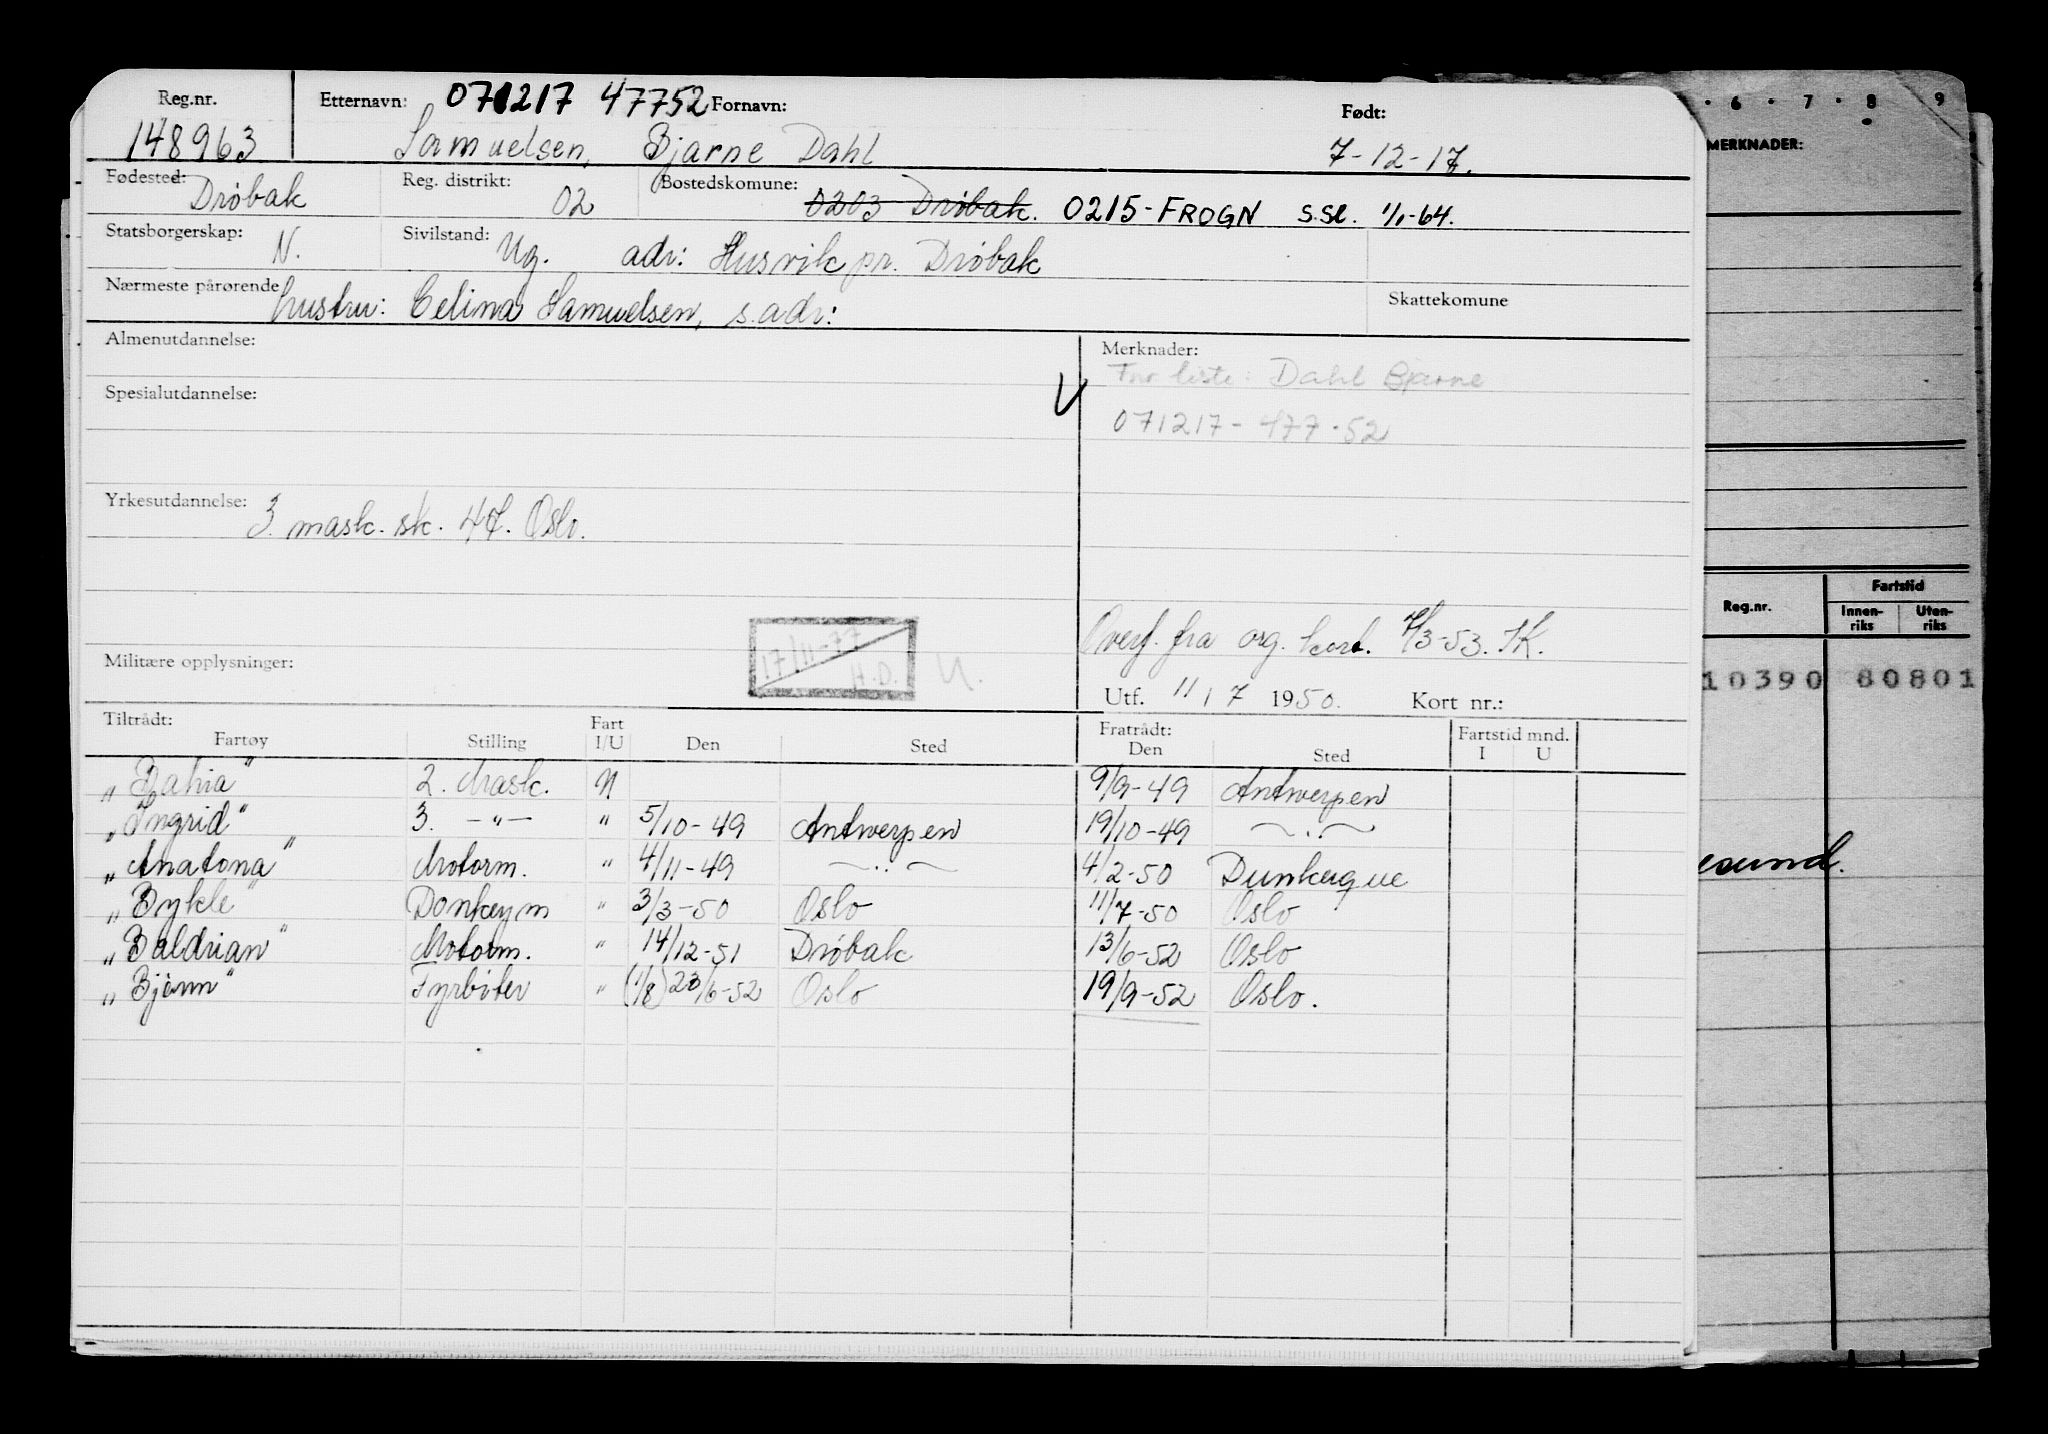 Reg.nr. Etternavn: 071217 47752 Fornavn: Født:
148963 Samuelsen, Bjarne Dahl 7-12-17.
Fødested: Drøbak Reg. distrikt: 02 Bostedskomune: 0203 Drøbak. 0215-FROGN s.sl. 1/1-64.
Statsborgerskap: N. Sivilstand: Ug. adr: Husvik pr. Drøbak
Nærmeste pårørende hustru: Celina Samuelsen, s.adr: Skattekomune
Almenutdannelse: Merknader:
Fnr liste: Dahl Bjarne
Spesialutdannelse:
071217-477-52
Yrkesutdannelse: 3. mask. sk. 47. Oslo.
17/11-77
H.D. U.
Overf. fra org. kort. 7/3-53. SK.
Militære opplysninger:
Utf. 11/7 1950. Kort nr.:
Tiltrådt: Fart Fratrådt: Fartstid mnd.
Fartøy Stilling I/U Den Sted Den Sted I U
"Bahia" 2. Mask. U 9/9-49 Antwerpen
"Ingrid" 3. -"- " 5/10-49 Antwerpen 19/10-49 -"-
"Anatona" Motorm. " 4/11-49 -"- 4/2-50 Dunkerque
"Bykle" Donkeym " 3/3-50 Oslo 11/7-50 Oslo
"Baldrian" Motorm. " 14/12-51 Drøbak 13/6-52 Oslo
"Bjønn" Fyrbøter " (1/8) 23/6-52 Oslo 19/9-52 Oslo.
6 7 8 9
MERKNADER:
Reg.nr. Fartstid
Innen-riks Uten-riks
10390 80801
esund.